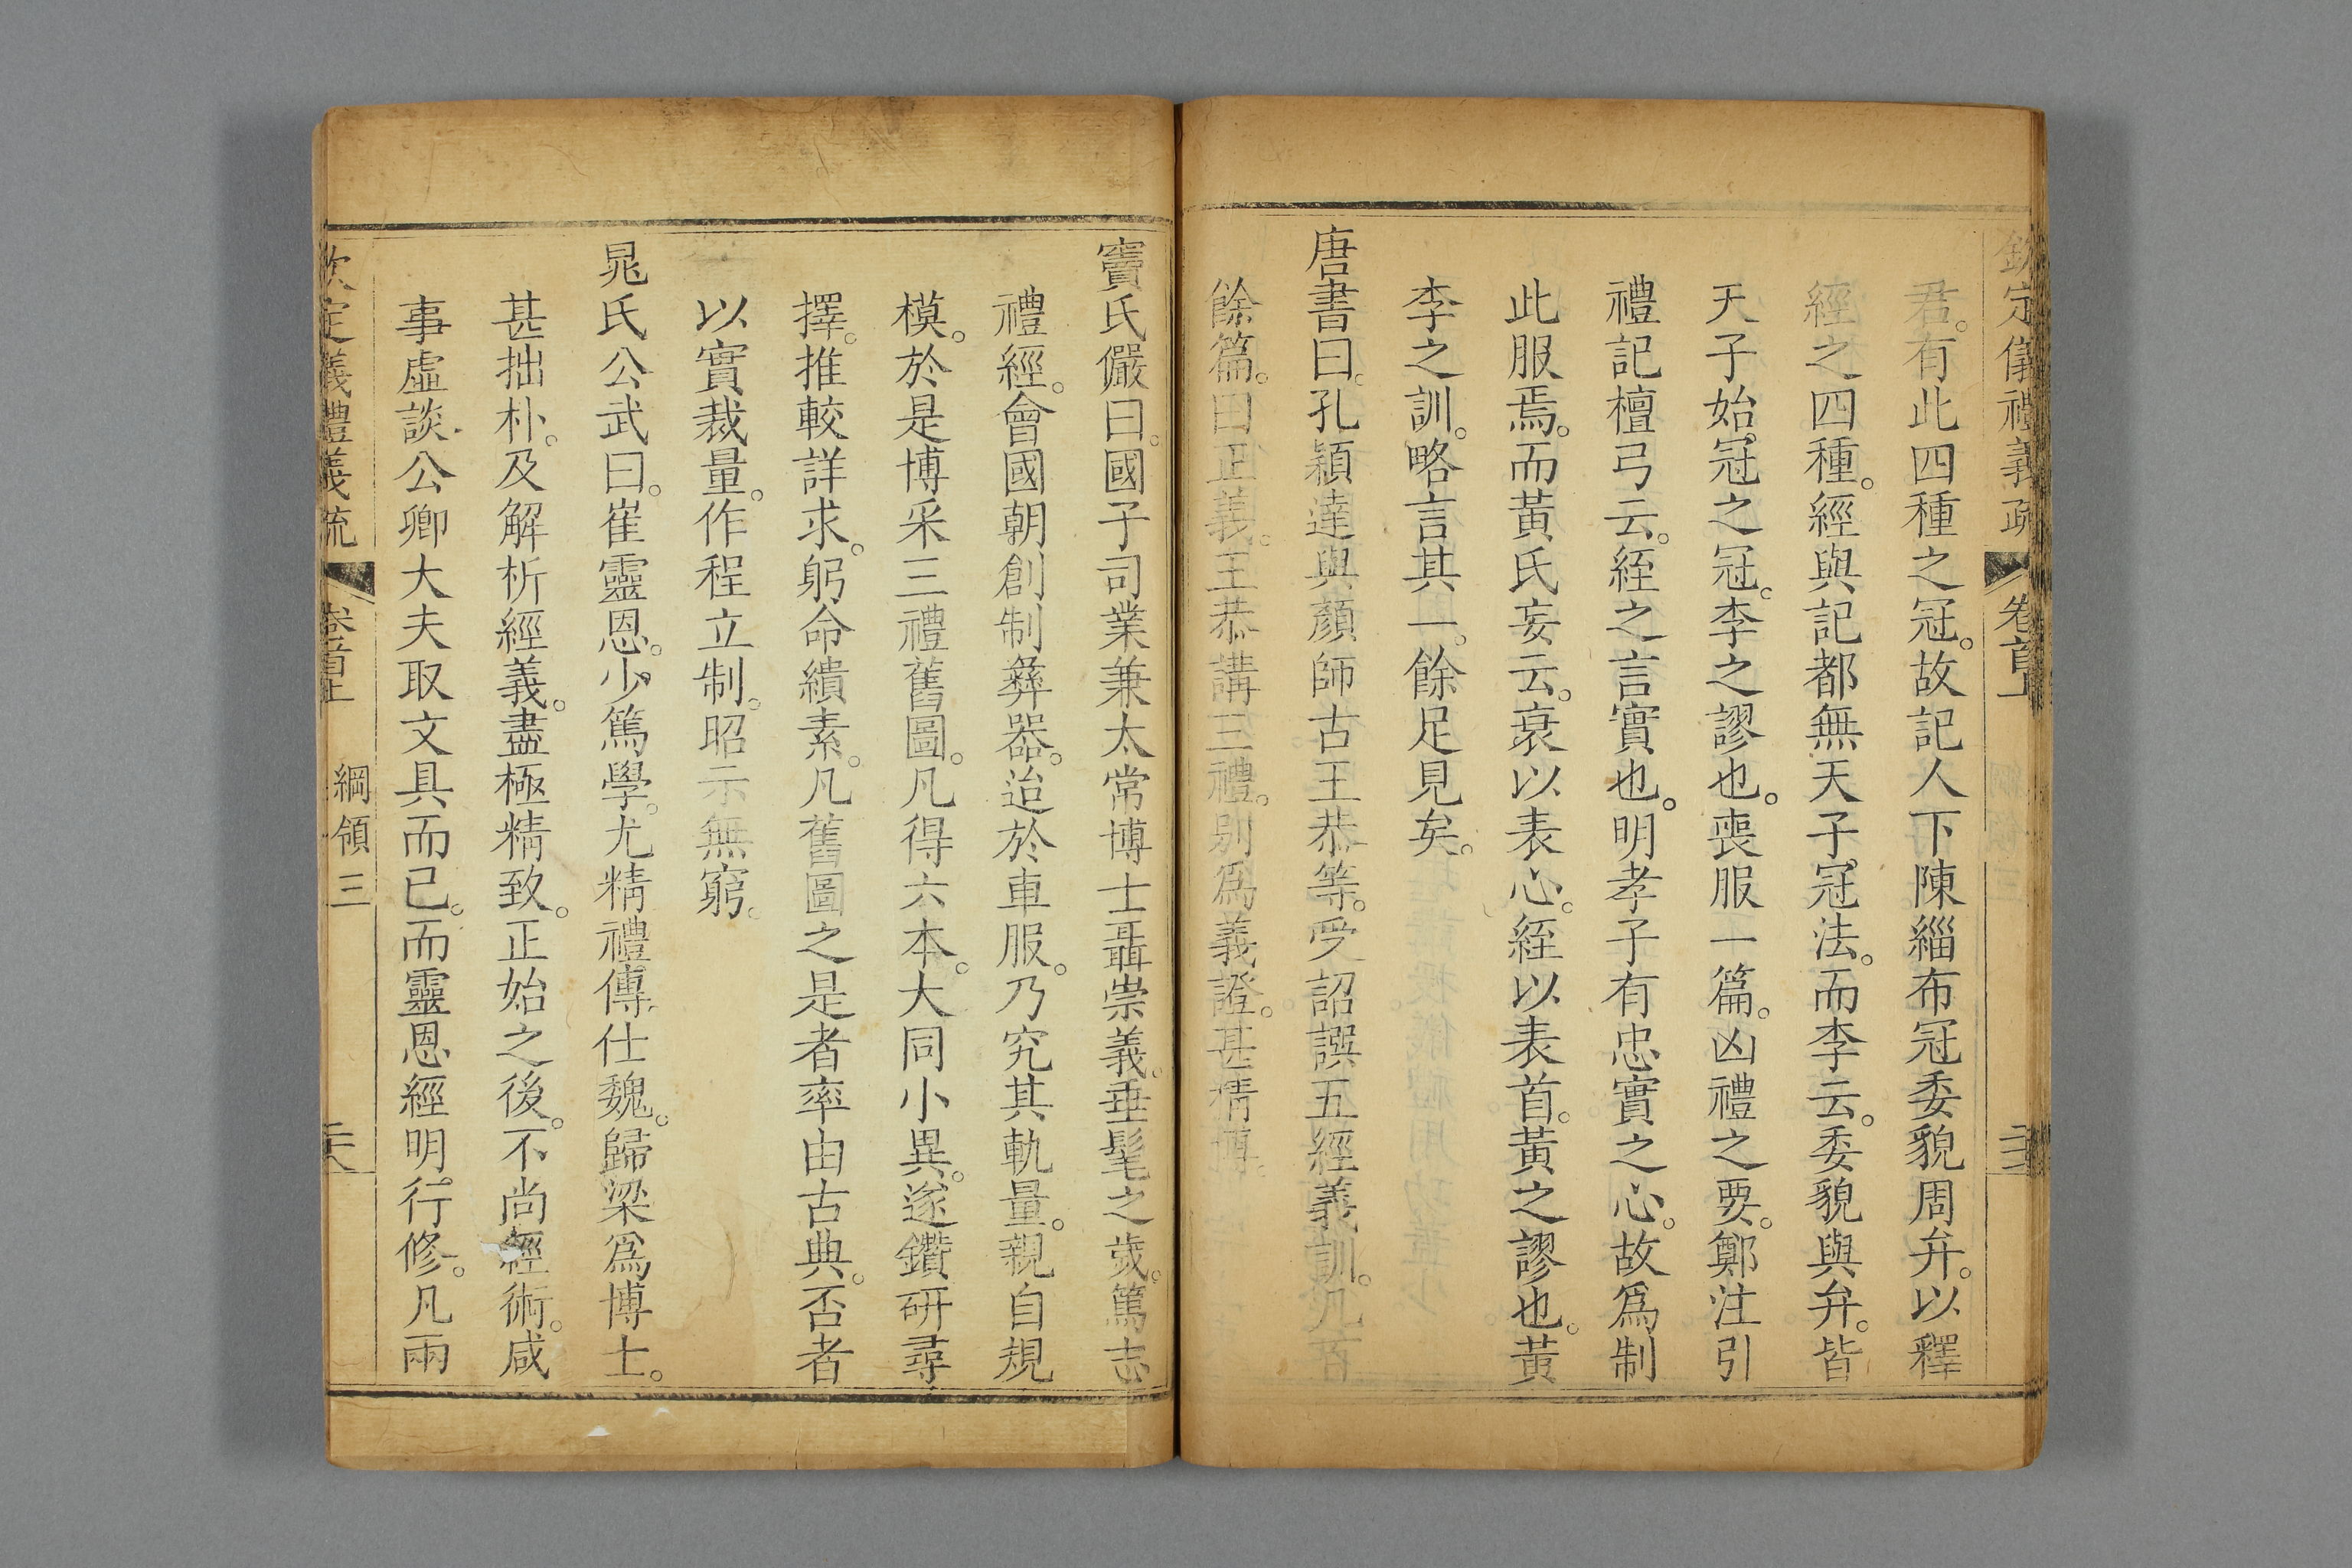 欽定儀禮義疏 卷首上
君。有此四種之冠。故記人下陳緇布冠委貌周弁。以釋
經之四種。經與記都無天子冠法。而李云。委貌與弁。皆
天子始冠之冠。李之謬也。喪服一篇。凶禮之要。鄭注引
禮記檀弓云。絰之言實也。明孝子有忠實之心。故爲制
此服焉。而黃氏妄云。衰以表心。絰以表首。黃之謬也。黃
李之訓。略言其一。餘足見矣。
唐書曰。孔穎達與顏師古王恭等。受詔譔五經義訓。凡百
餘篇。曰正義。王恭講三禮。別爲義證。甚精博。
竇氏儼曰。國子司業兼太常博士聶崇義。垂髦之歲。篤志
禮經。會國朝創制彝器。迨於車服。乃究其軌量。親自規
模。於是博采三禮舊圖。凡得六本。大同小異。遂鑽研尋
擇。推較詳求。躬命繢素。凡舊圖之是者率由古典。否者
以實裁量。作程立制。昭示無窮。
晁氏公武曰。崔靈恩。少篤學。尤精禮傳。仕魏。歸梁爲博士。
甚拙朴。及解析經義。盡極精致。正始之後。不尚經術。咸
事虛談。公卿大夫取文具而已。而靈恩經明行修。凡兩
欽定儀禮義疏 卷首上 綱領三